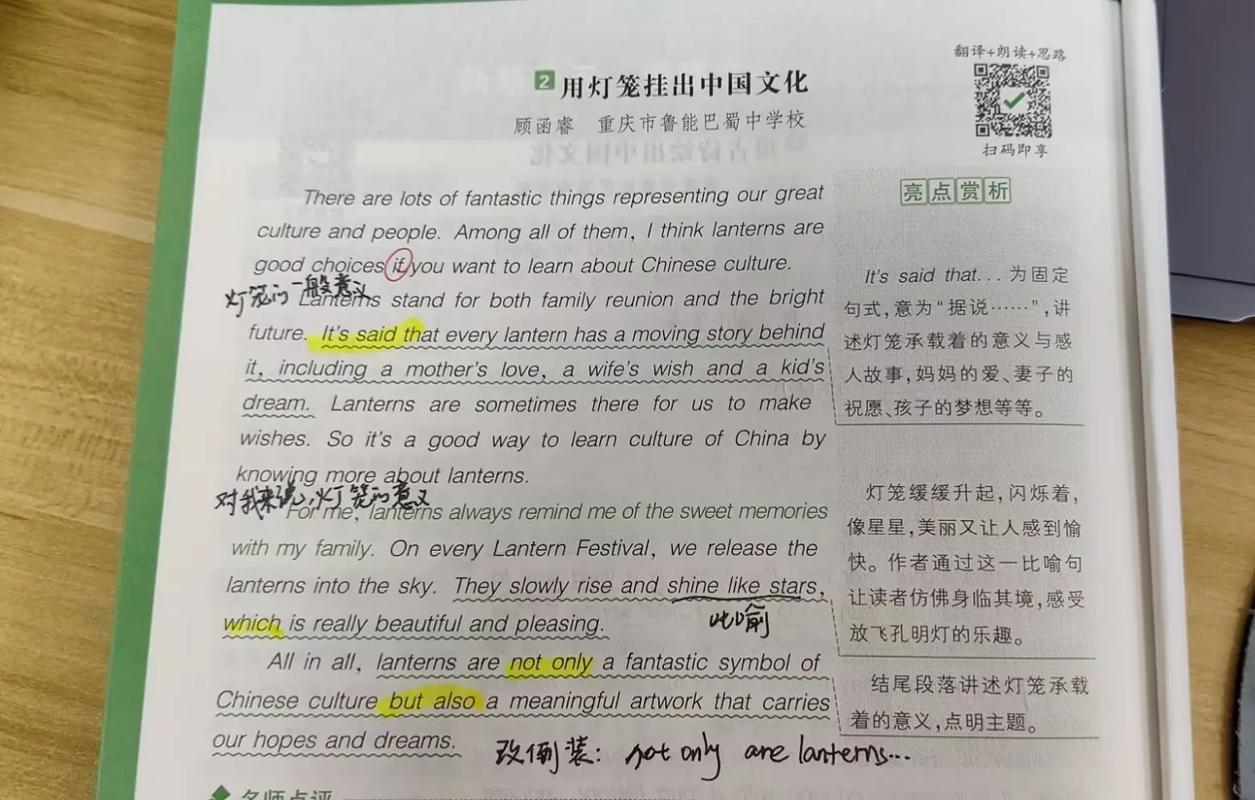 翻译+朗读+思路
扫码即享
2 用灯笼挂出中国文化
顾函睿 重庆市鲁能巴蜀中学校
There are lots of fantastic things representing our great
culture and people. Among all of them, I think lanterns are
good choices if you want to learn about Chinese culture.
灯笼的一般意义
Lanterns stand for both family reunion and the bright
future. It's said that every lantern has a moving story behind
it, including a mother's love, a wife's wish and a kid's
dream. Lanterns are sometimes there for us to make
wishes. So it's a good way to learn culture of China by
knowing more about lanterns.
对我来说,灯笼的意义
For me, lanterns always remind me of the sweet memories
with my family. On every Lantern Festival, we release the
lanterns into the sky. They slowly rise and shine like stars,
which is really beautiful and pleasing.
比喻
All in all, lanterns are not only a fantastic symbol of
Chinese culture but also a meaningful artwork that carries
our hopes and dreams.
改倒装: not only are lanterns...
亮点赏析
It's said that...为固定
句式,意为“据说……”,讲
述灯笼承载着的意义与感
人故事,妈妈的爱、妻子的
祝愿、孩子的梦想等等。
灯笼缓缓升起,闪烁着,
像星星,美丽又让人感到愉
快。作者通过这一比喻句
让读者仿佛身临其境,感受
放飞孔明灯的乐趣。
结尾段落讲述灯笼承载
着的意义,点明主题。
名师点评